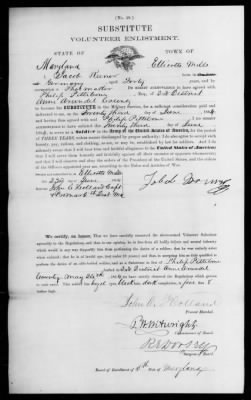 (No. 29.)
SUBSTITUTE
VOLUNTEER ENLISTMENT.
STATE OF TOWN OF
Maryland Ellicotts Mills
I, Jacob
Germany aged Forty years,
and by occupation a Shoemaker DO HEREBY ACKNOWLEDGE to have agreed with
Philip Pettibone of 5th District
Anne Arundel County
to become his SUBSTITUTE in the Military Service, for a sufficient consideration paid and
delivered to me, on the Twenty third day of June, 1864;
and having thus agreed with said Philip Pettibone I DO
HEREBY ACKNOWLEDGE to have enlisted this Twenty third day of June
1864, to serve as a Soldier in the Army of the United States of America, for the period
of THREE YEARS, unless sooner discharged by proper authority: I do also agree to accept such
bounty, pay, rations, and clothing, as are, or may be, established by law for soldiers. And I do
solemnly swear that I will bear true and faithful allegiance to the United States of America;
that I will serve them honestly and faithfully against all their enemies or opposers whomsoever;
and that I will observe and obey the orders of the President of the United States, and the orders
of the Officers appointed over me, according to the Rules and Articles of War.
Ellicotts Mills
23d June 1864
John C Holland Capt
& Provost M 5th Dist Md
We certify, on honor, That we have carefully examined the above-named Volunteer Substitute
agreeably to the Regulations, and that, in our opinion, he is free from all bodily defects and mental infirmity
which would in any way disqualify him from performing the duties of a soldier; that he was entirely sober
when enlisted; that he is of lawful age, (not under 18 years;) and that, in accepting him as duly qualified to
perform the duties of an able-bodied soldier, and as a Substitute in lieu of Philip Pettibone
5th District Anne Arundel
County May 26th 1864
This soldier has eyes, hair, complexion; is 5 feet 8
inches high.
John C Holland
Provost Marshal.
Commissioner of Board.
Surgeon of Board.
Board of Enrolment of 5th Dist. Maryland